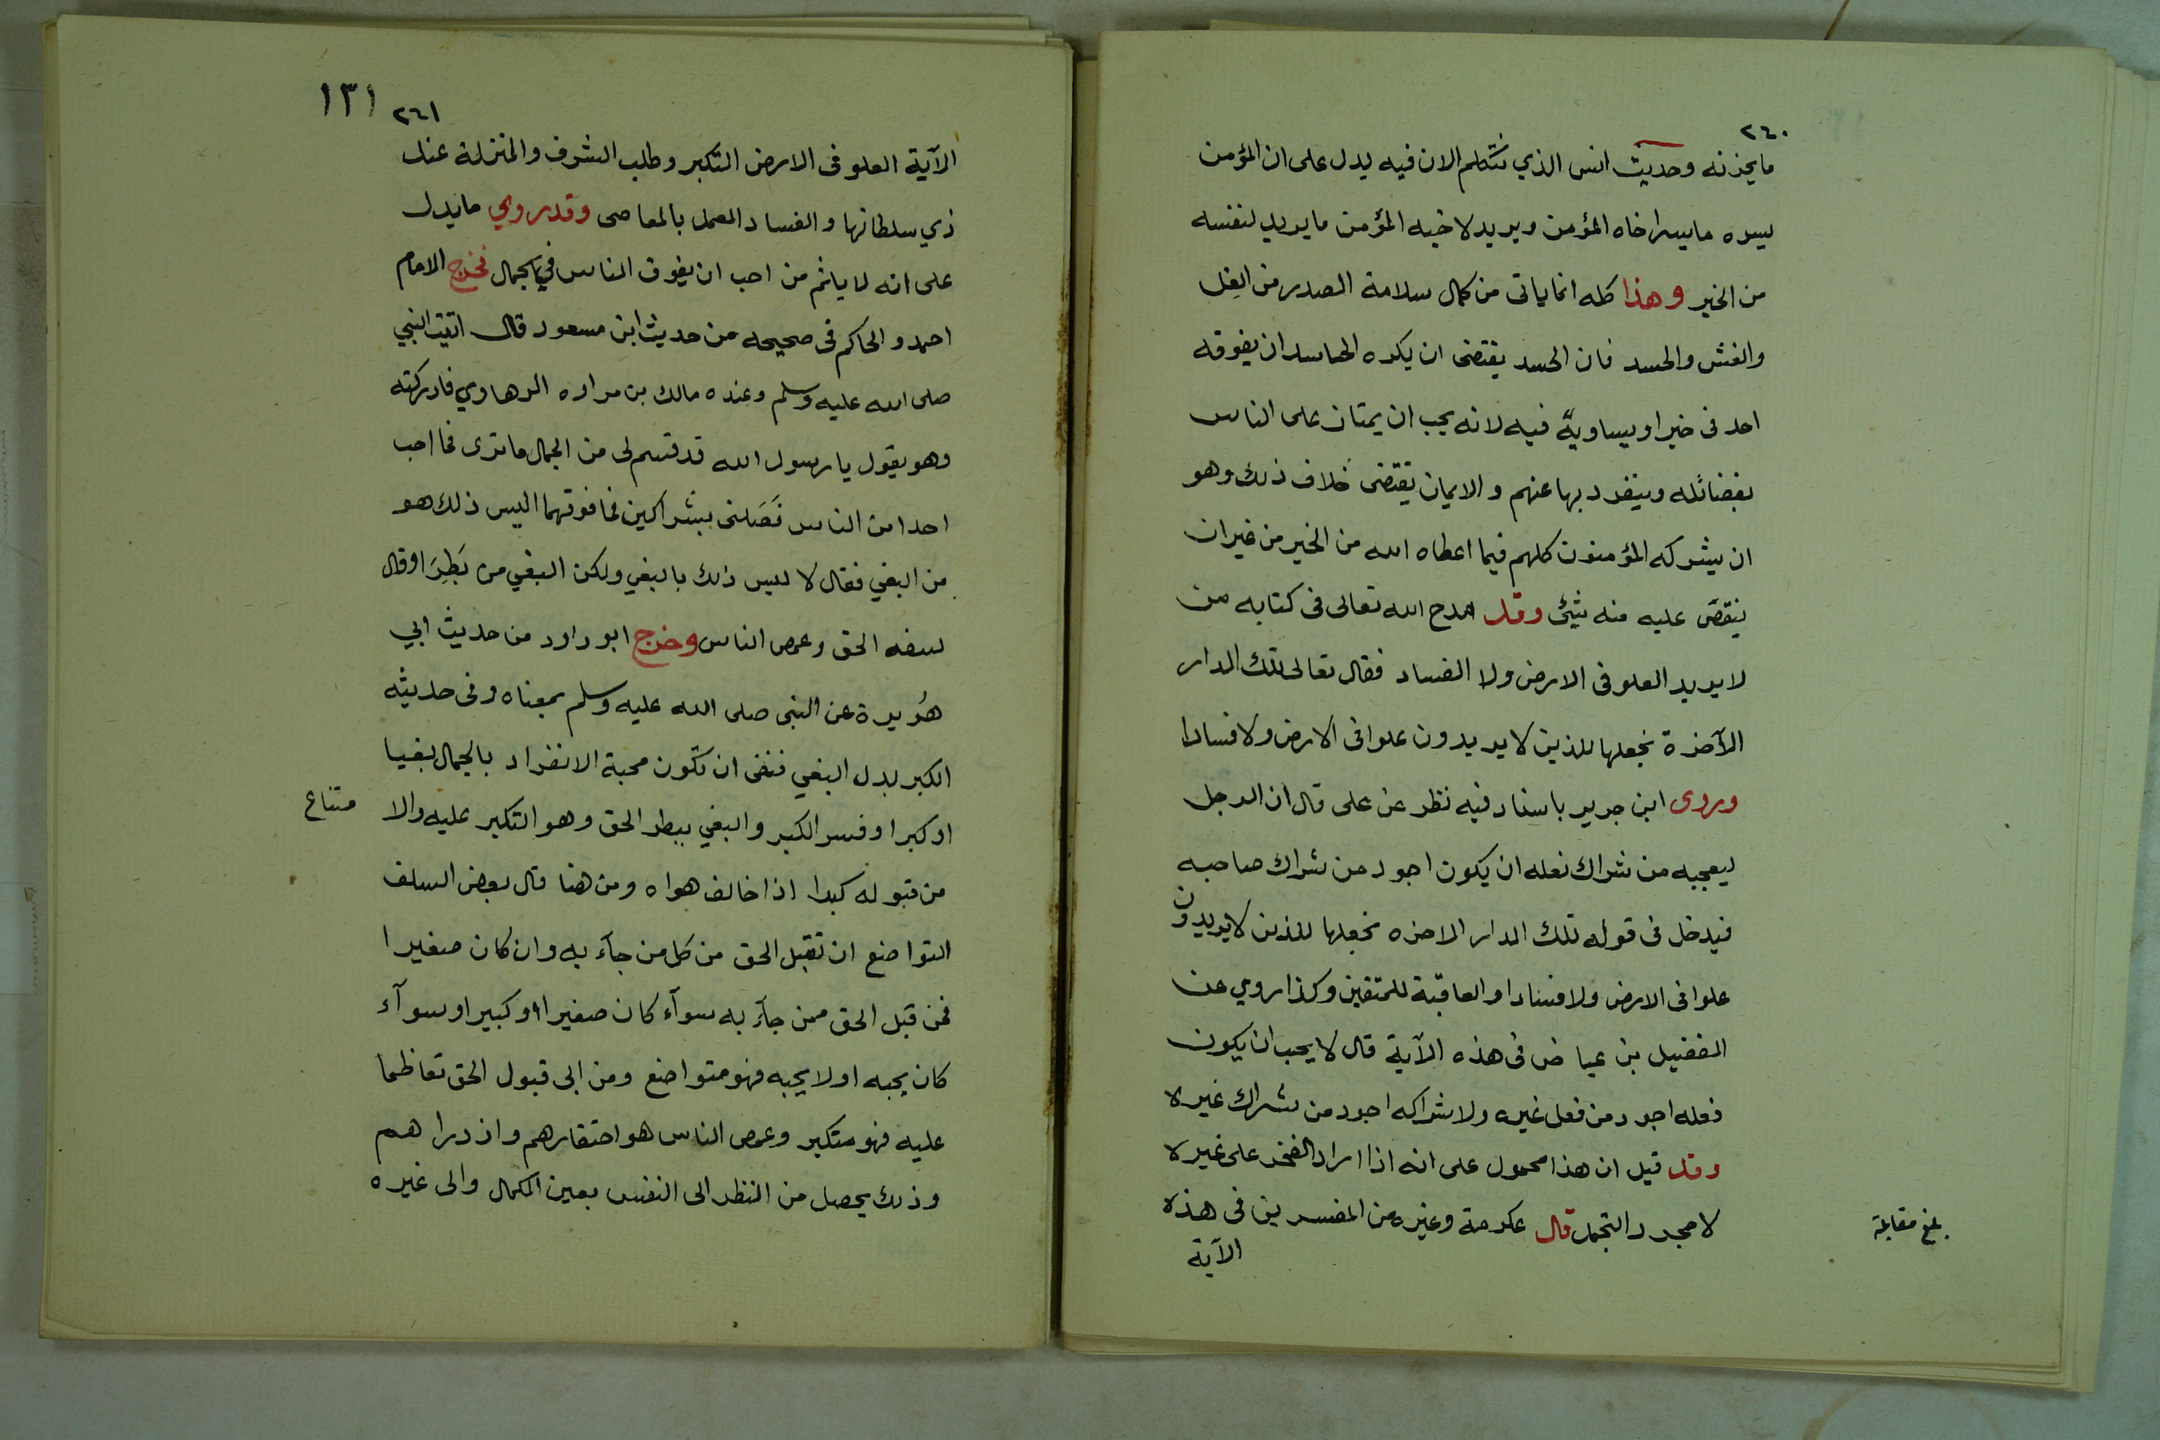 ٢٤٠
ما يحزنه وحديث انس الذي نتكلم الان فيه يدل على ان المؤمن
يسره ما يسر اخاه المؤمن ويريد لاخيه المؤمن ما يريد لنفسه
من الخير وهذا كله انما ياتى من كمال سلامة الصدر من الغل
والغش والحسد فان الحسد يقتضى ان يكره الحاسد ان يفوقه
احد فى خير او يساويه فيه لانه يحب ان يمتان على الناس
بفضائله وينفرد بها عنهم والايمان يقتضى خلاف ذلك وهو
ان يشركه المؤمنون كلهم فيما اعطاه الله من الخير من غير ان
ينقص عليه منه شئ وقد مدح الله تعالى فى كتابه من
لا يريد العلو فى الارض ولا الفساد فقال تعالى تلك الدار
الآخرة نجعلها للذين لا يريدون علوا فى الارض ولا فسادا
وروى ابن جرير باسناد فيه نظر عن على قال ان الرجل
ليعجبه من شراك نعله ان يكون اجود من شراك صاحبه
فيدخل فى قوله تلك الدار الاخره نجعلها للذين لا يريدون
علوا فى الارض ولا فسادا والعاقبة للمتقين وكذا روي عن
الفضيل بن عياض فى هذه الآية قال لا يحب ان يكون
نعله اجود من نعل غيره ولا شراكه اجود من شراك غيره
وقد قيل ان هذا محمول على انه اذا اراد الفخر على غيره
لا مجرد التجمل قال عكرمة وغيره من المفسرين فى هذه
الآية
بلغ مقابلة
١٣١
٢٤١
الآية العلو فى الارض التكبر وطلب الشرف والمنزلة عند
ذي سلطانها والفساد العمل بالمعاصى وقد روي ما يدل
على انه لا ياثم من احب ان يفوق الناس في الجمال فخرج الامام
احمد والحاكم فى صحيحه من حديث ابن مسعود قال اتيت النبي
صلى الله عليه وسلم وعنده مالك بن مراره الرهاوي فادركته
وهو يقول يا رسول الله قد قسم لى من الجمال ما ترى فما احب
احدا من الناس فَضَلنى بشراكين فما فوقهما اليس ذلك هو
من البغي فقال لا ليس ذلك بالبغي ولكن البغي من بَطِرَ او قال
سفه الحق وغمص الناس وخرج ابو داود من حديث ابي
هُريرة عن النبى صلى الله عليه وسلم بمعناه وفى حديثه
الكبر بدل البغي فنفى ان تكون محبة الانفراد بالجمال بغيا
او كبرا وفسر الكبر والبغي ببطر الحق وهو التكبر عليه والا
متناع
من قبوله كبرا اذا خالف هواه ومن هنا قال بعض السلف
التواضع ان تقبل الحق من كل من جآء به وان كان صغيرا
فمن قبل الحق ممن جآء به سوآء كان صغيرا او كبيرا وسوآء
كان يحبه او لا يحبه فهو متواضع ومن ابى قبول الحق تعاظما
عليه فهو متكبر وغمص الناس هو احتقارهم وازدراهم
وذلك يحصل من النظر الى النفس بعين الكمال والى غيره